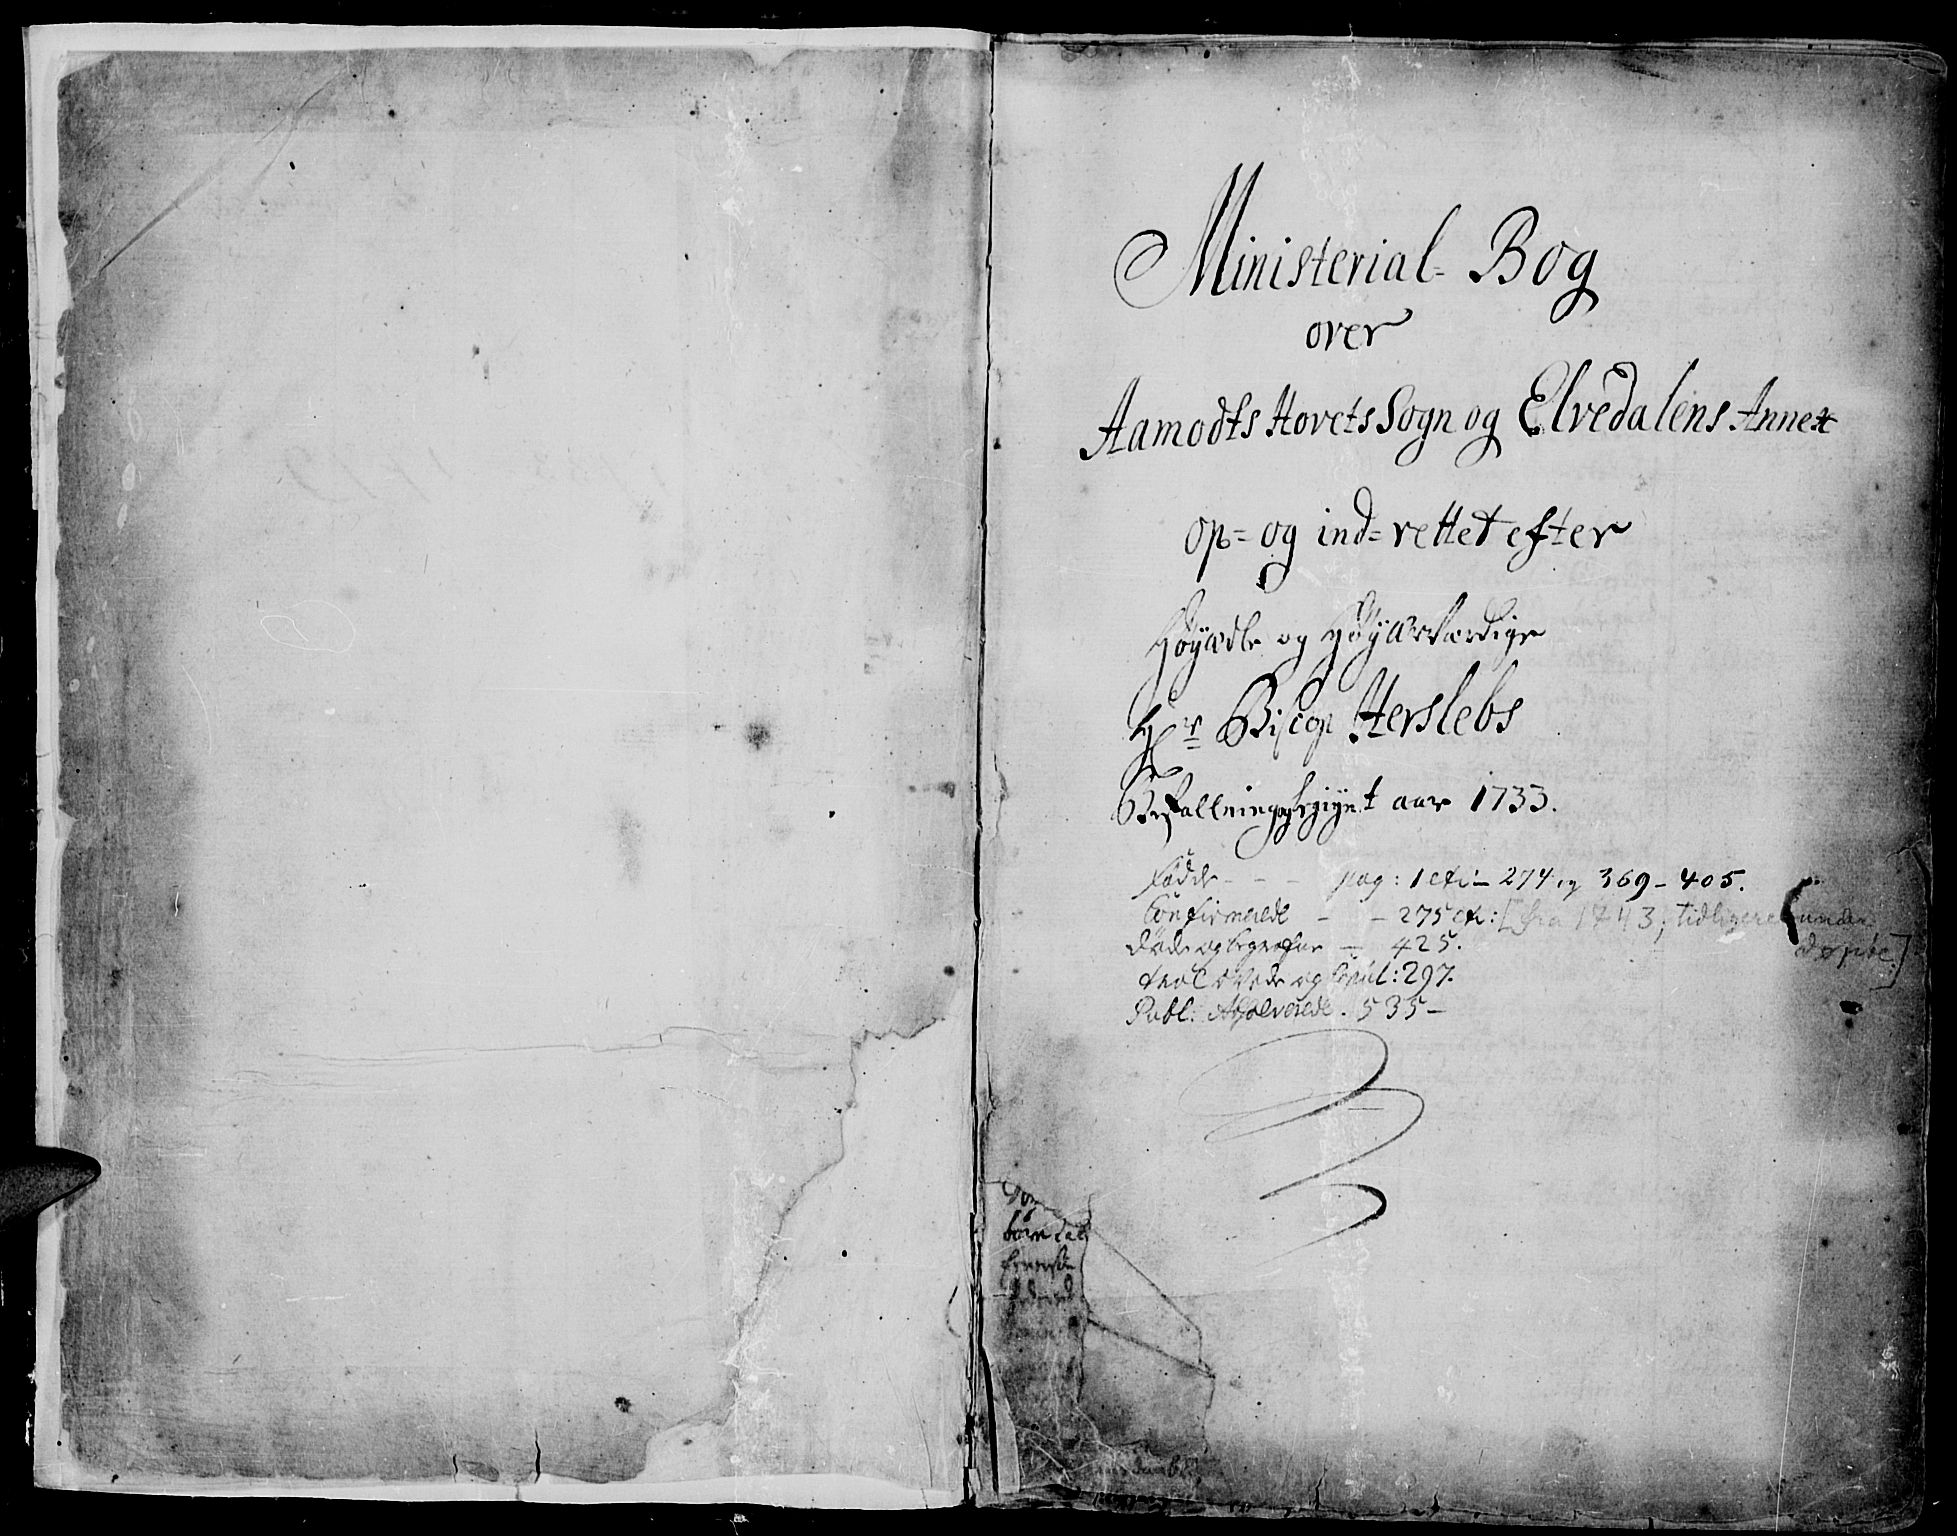 Ministerial- Bog
over
Aamodts Hovets Sogn og Elvedalens Annex
op= og ind= rettet efter
Høyædle og Høyærværdige
Hr Biscop Herslebs
Befallning aar 1733.
Fødde - - - pag: 1 etc:- 274 og 369 - 405.
Confirmerede - - 275 etc: [fra 1743; tidligere under
døpte.]
Døde og begrafne - 425.
Troelovede og Copul: 297.
Publ: Absolverede. 535 -